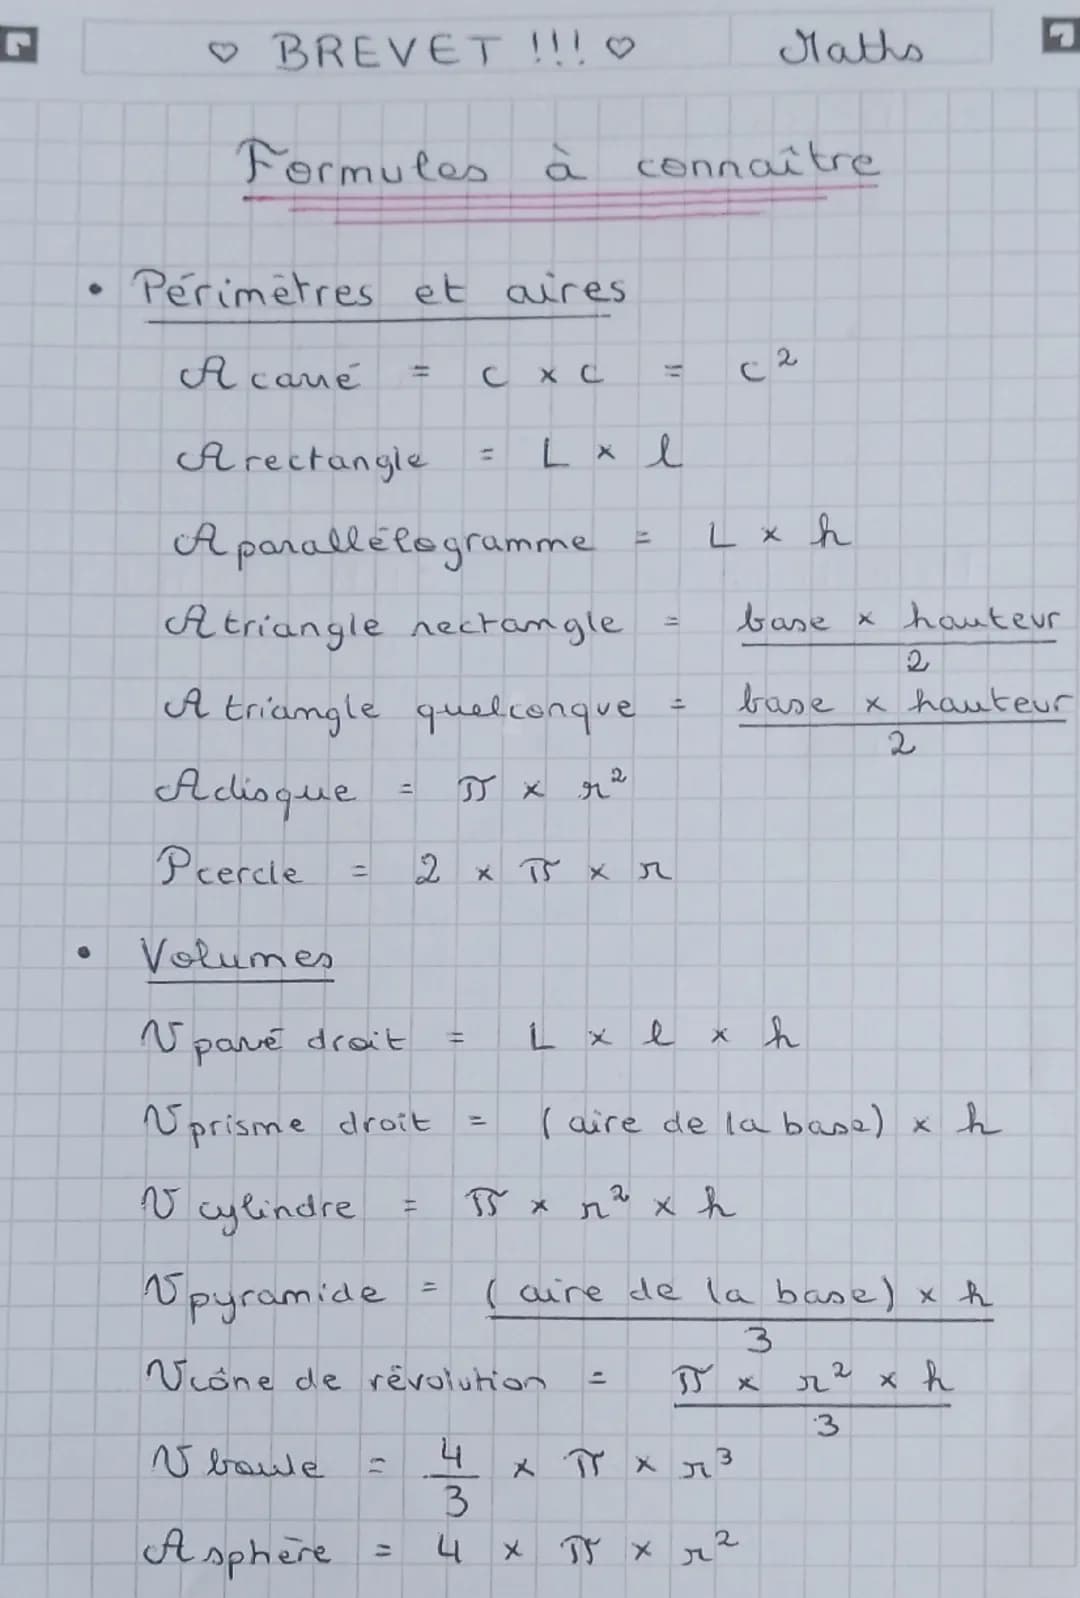 ♡ BREVET !!! ♡ Maths
Formules à connaître
• Périmètres et aires
A carré = c × c = c²
A rectangle = L × l
A parallélogramme = L × h
A triangle rectangle = base × hauteur
2
A triangle quelconque = base × hauteur
2
A disque = π × r²
P cercle = 2 × π × r
• Volumes
V pavé droit = L × l × h
V prisme droit = (aire de la base) × h
V cylindre = π × r² × h
V pyramide = (aire de la base) × h
3
V cône de révolution = π × r² × h
3
V boule = 4/3 × π × r³
A sphère = 4 × π × r²